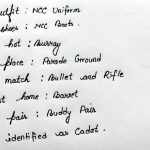 outfit : NCC Uniform
shoes : NCC Boots.
hot : Murray
place : Parade Ground
match : Bullet and Rifle
t home : Barrot
pair : Buddy Pair
identified as Cadet.